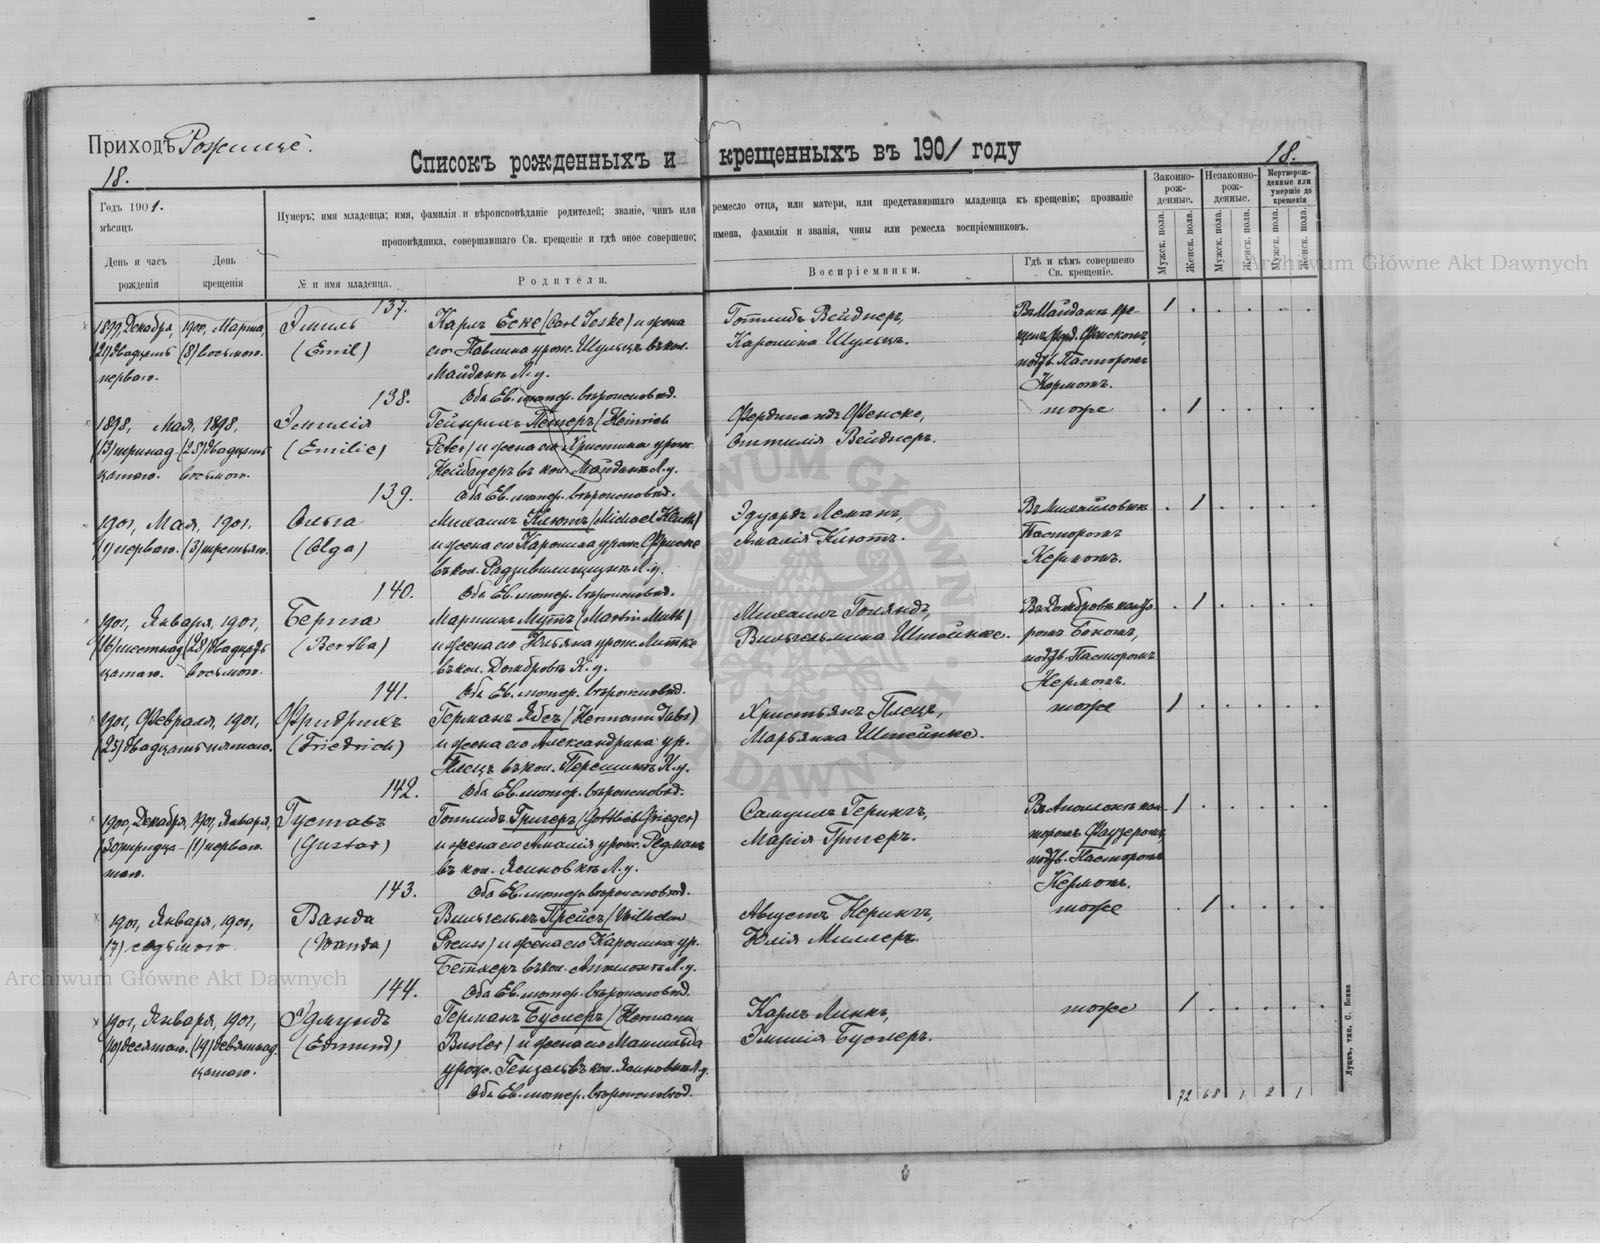 Приходъ Рожище.
Списокъ рожденныхъ и крещенныхъ въ 1901 году
18.
18.
Годъ 1901.
мѣсяцъ
День и часъ
рожденія
День
крещенія
Нумеръ; имя младенца; имя, фамилія и вѣроисповѣданіе родителей; званіе, чинъ или ремесло отца, или матери, или представившаго младенца къ крещенію; прозваніе
проповѣдника, совершавшаго Св. крещеніе и гдѣ оное совершено; имена, фамиліи и званія, чины или ремесла воспріемниковъ.
№ и имя младенца.
Родители.
Воспріемники.
Гдѣ и кѣмъ совершено
Св. крещеніе.
Законно-
рож-
денные.
Незаконно-
рож-
денные.
Мертворож-
денные или
умершіе до
крещенія
Мужск. пола.
Женск. пола.
Мужск. пола.
Женск. пола.
Мужск. пола.
Женск. пола.
137.
1899, Декабря, 1900, Марта,
(21) двадцать (8) восьмого.
перваго.
Эмиль
(Emil)
Карлъ Еске (Carl Jeske) и жена
его Павлина урож. Шульцъ въ кол.
Майданъ Л.у.
Оба Ев. лютер. вѣроисповѣд.
Готлибъ Вейднеръ,
Каролина Шульцъ.
Въ Майданѣ
Фенскомъ,
подтв. Пасторомъ
Кермомъ.
1
138.
1898, Мая, 1898,
(13) тринад- (28) двадцать
цатаго. восьмого.
Эмилія
(Emilie)
Гейнрихъ Петеръ (Heinrich
Peter) и жена его Христина урож.
въ кол. Майданъ Л.у.
Оба Ев. лютер. вѣроисповѣд.
Фердинандъ Фенске,
Оттилія Вейднеръ.
тоже
1
139.
1901, Мая, 1901,
(1) перваго. (3) третьяго.
Ольга
(Olga)
Михаилъ Клютъ (Michael Kluth)
и жена его Каролина урож. Фриске
въ кол. Л.у.
Оба Ев. лютер. вѣроисповѣд.
Эдуардъ Леманъ,
Амалія Клютъ.
Въ Михайловкѣ
Пасторомъ
Кермомъ.
1
140.
1901, Января, 1901,
(16) шестнад- (28) двадцать
цатаго. восьмого.
Берта
(Bertha)
Мартинъ Мутъ (Martin Muth)
и жена его Юльяна урож. Литке
въ кол. Домбровъ К.у.
Оба Ев. лютер. вѣроисповѣд.
Михаилъ Голандъ,
Вильгельмина Штейнке.
Въ Домбровѣ канто-
ромъ Бокомъ,
подтв. Пасторомъ
Кермомъ.
1
141.
1901, Февраля, 1901,
(25) двадцать пятаго.
Фридрихъ
(Friedrich)
Германъ Ябсъ (Hermann Jabs)
и жена его Александрина ур.
Плецъ въ кол. К.у.
Оба Ев. лютер. вѣроисповѣд.
Христьянъ Плецъ,
Марьянна Штейнке.
тоже
1
142.
1900, Декабря, 1901, Января,
(30) тридца- (1) перваго.
таго.
Густавъ
(Gustav)
Готлибъ Григеръ (Gottlieb Grieger)
и жена его Амалія урож. Редманъ
въ кол. Ясиновкѣ Л.у.
Оба Ев. лютер. вѣроисповѣд.
Самуилъ Герингъ,
Марія Григеръ.
Въ Аполонъ кан-
торомъ Фаузеромъ,
подтв. Пасторомъ
Кермомъ.
1
143.
1901, Января, 1901,
(7) седьмого
Ванда
(Wanda)
Вильгельмъ Прейсъ (Wilhelm
Preuss) и жена его Каролина ур.
Беткеръ въ кол. Аполонъ Л.у.
Оба Ев. лютер. вѣроисповѣд.
Августъ Герингъ,
Юлія Миллеръ.
тоже
1
144.
1901, Января, 1901,
(10) десятаго. (19) девятнад-
цатаго.
Эдмундъ
(Edmund)
Германъ Буслеръ (Hermann
Busler) и жена его Матильда
урож. Гензель въ кол. Ясиновкѣ Л.у.
Оба Ев. лютер. вѣроисповѣд.
Карлъ Линкъ,
Эмилія Буслеръ.
тоже
1
72 68 1 2 1
Луцкъ, тип. С. Бокса
Archiwum Główne Akt Dawnych
Archiwum Główne Akt Dawnych